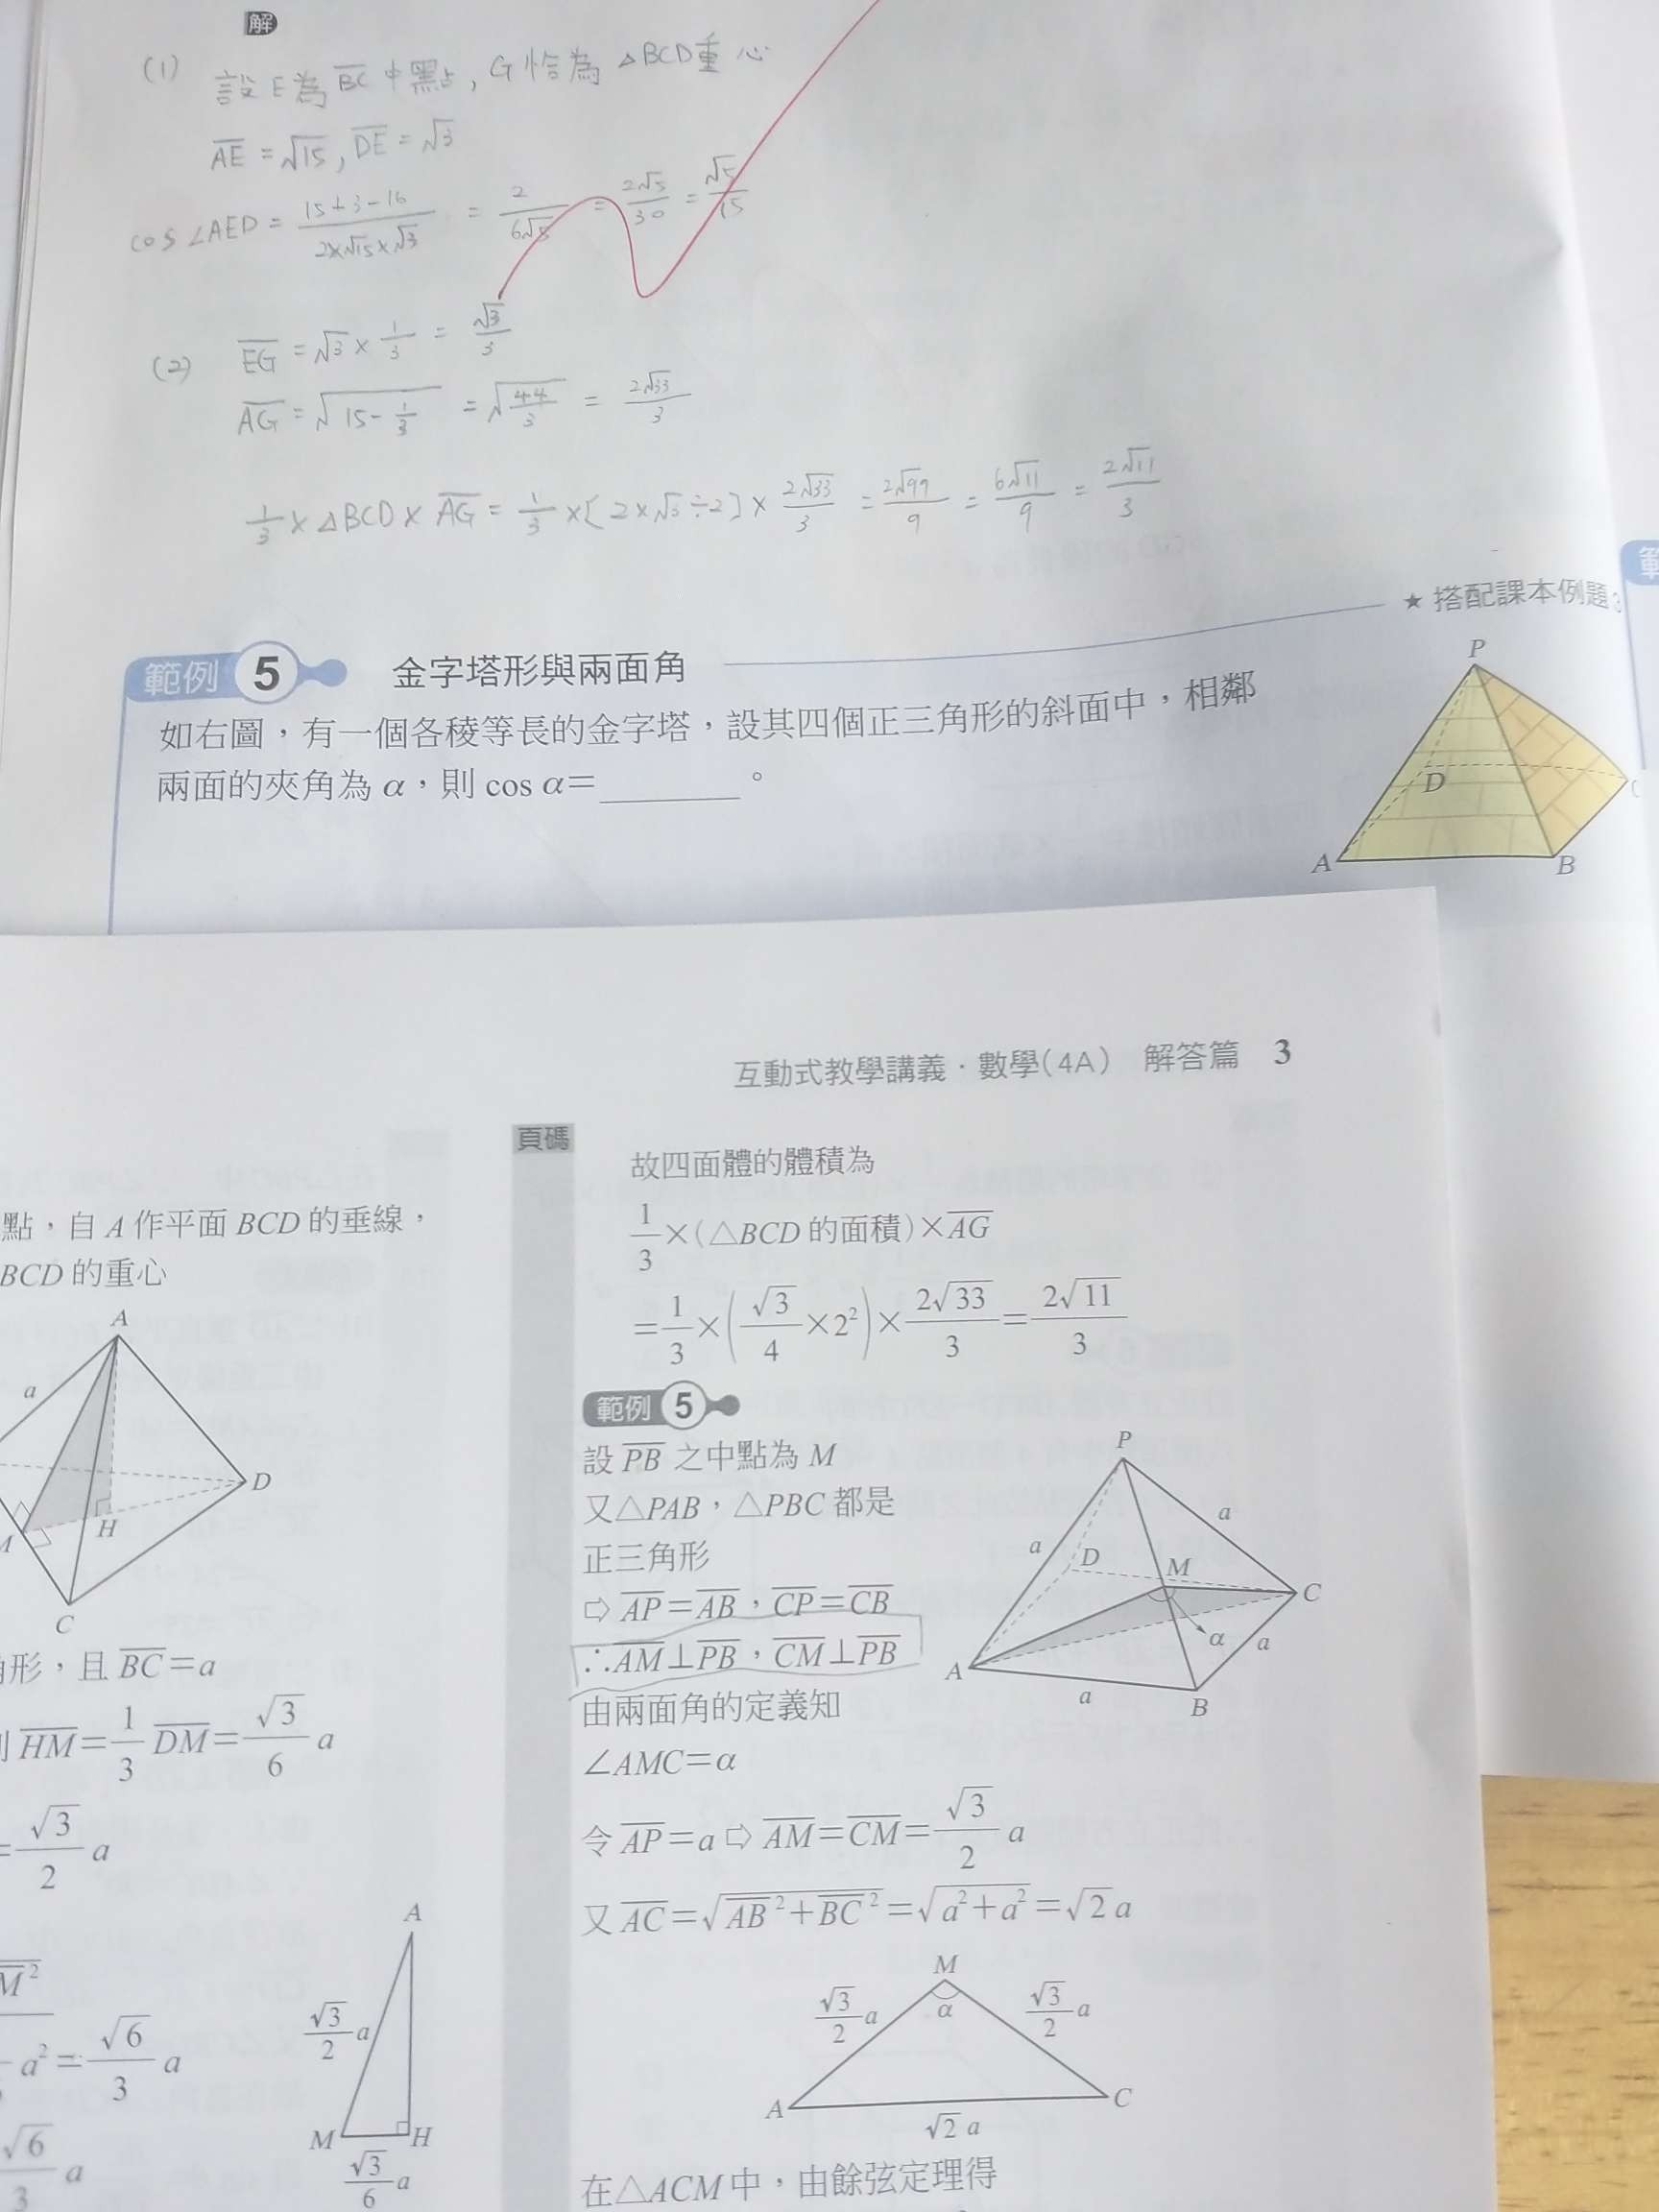 解
(1) 設E為BC中點, G恰為△BCD重心
AE = √15, DE = √3
cos∠AED = (15+3-16)/(2×√15×√3) = 2/(6√5) = 2√5/30 = √5/15
(2) EG = √3 × 1/3 = √3/3
AG = √(15 - 1/3) = √(44/3) = 2√33/3
1/3 × △BCD × AG = 1/3 × [2×√3÷2] × 2√33/3 = 2√99/9 = 6√11/9 = 2√11/3
★ 搭配課本例題3
範例 5 金字塔形與兩面角
如右圖,有一個各稜等長的金字塔,設其四個正三角形的斜面中,相鄰
兩面的夾角為 α,則 cos α=________。
P
D
C
A
B
互動式教學講義·數學(4A) 解答篇 3
點,自 A 作平面 BCD 的垂線,
BCD 的重心
A
a
D
H
M
C
形,且 BC=a
HM=1/3 DM=√3/6 a
=√3/2 a
M²
a²=√6/3 a
√6/3 a
A
√3/2 a
M
H
√3/6 a
頁碼
故四面體的體積為
1/3×(△BCD 的面積)×AG
=1/3×(√3/4×2²)×2√33/3=2√11/3
範例 5
設 PB 之中點為 M
又△PAB,△PBC 都是
正三角形
⇨ AP=AB,CP=CB
∴AM⊥PB,CM⊥PB
由兩面角的定義知
∠AMC=α
P
a
a
D
M
C
α
a
A
a
B
令 AP=a ⇨ AM=CM=√3/2 a
又 AC=√(AB²+BC²)=√(a²+a²)=√2 a
M
√3/2 a
α
√3/2 a
A
C
√2 a
在△ACM 中,由餘弦定理得